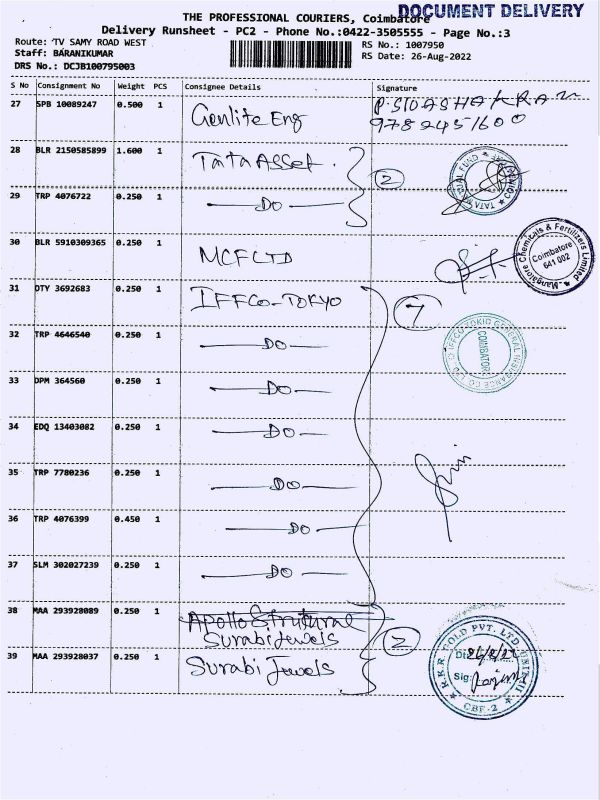 DOCUMENT DELIVERY
THE PROFESSIONAL COURIERS, Coimbatore
Delivery Runsheet - PC2 - Phone No.:0422-3505555 - Page No.:3
Route: TV SAMY ROAD WEST
RS No.: 1007950
Staff: BARANIKUMAR
RS Date: 26-Aug-2022
DRS No.: DCJB100795003
S No Consignment No Weight PCS Consignee Details Signature
27 SPB 10089247 0.500 1 Genlite Eng
9782451600
28 BLR 2150585899 1.600 1 Tata Asset. 2
29 TRP 4076722 0.250 1 DO
30 BLR 5910309365 0.250 1 MCF LTD
Mangalore Chemicals & Fertilizers Limited
Coimbatore
641 002
31 DTY 3692683 0.250 1 IFFCO-TOKYO 7
IFFCO TOKIO GENERAL INSURANCE CO LTD
COIMBATORE
32 TRP 4646540 0.250 1 DO
33 DPM 364560 0.250 1 DO
34 EDQ 13403082 0.250 1 DO
35 TRP 7780236 0.250 1 DO
36 TRP 4076399 0.450 1 DO
37 SLM 302027239 0.250 1 DO
38 MAA 293928089 0.250 1 Apollo Strutural
Surabi Jewels 2
39 MAA 293928037 0.250 1 Surabi Jewels
R.K.R. GOLD PVT. LTD. UNIT-II
Dt: 26/8/22
Sig:
CBE-2